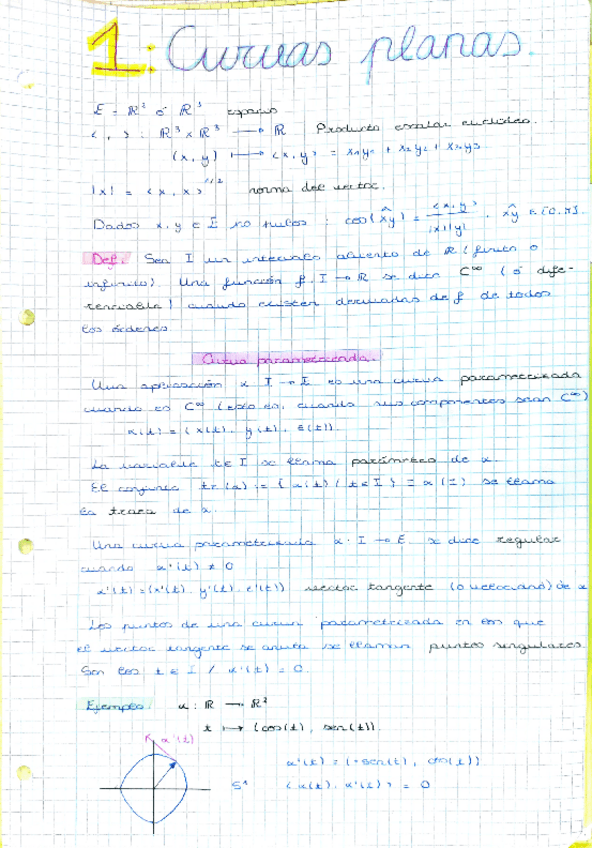 1: Curvas planas.
E = ℝ² ó ℝ³ espacio
< , > : ℝ³ x ℝ³ → ℝ Producto escalar euclídeo.
(x, y) ↦ <x, y> = x₁y₁ + x₂y₂ + x₃y₃
|x| = <x, x>^1/2 norma del vector.
Dados x, y ∈ E no nulos : cos(x̂y) = <x, y> / |x||y| , x̂y ∈ [0, π].
Def. Sea I un intervalo abierto de ℝ (finito o
infinito). Una función f: I → ℝ se dice C^∞ (ó dife-
renciable) cuando existen derivadas de f de todos
los órdenes.
Curva parametrizada.
Una aplicación α: I → E es una curva parametrizada
cuando es C^∞ (esto es, cuando sus componentes sean C^∞)
α(t) = (x(t), y(t), z(t)).
La variable t ∈ I se llama parámetro de α.
El conjunto tr(α) := { α(t) / t ∈ I } = α(I) se llama
la traza de α.
Una curva parametrizada α: I → E se dice regular
cuando α'(t) ≠ 0
α'(t) = (x'(t), y'(t), z'(t)) vector tangente (o velocidad) de α
Los puntos de una curva parametrizada en los que
el vector tangente se anula se llaman puntos singulares.
Son los t ∈ I / α'(t) = 0.
Ejemplo. α: ℝ → ℝ²
t ↦ (cos(t), sen(t)).
α'(t)
α'(t) = (-sen(t), cos(t))
S¹ <α(t), α'(t)> = 0